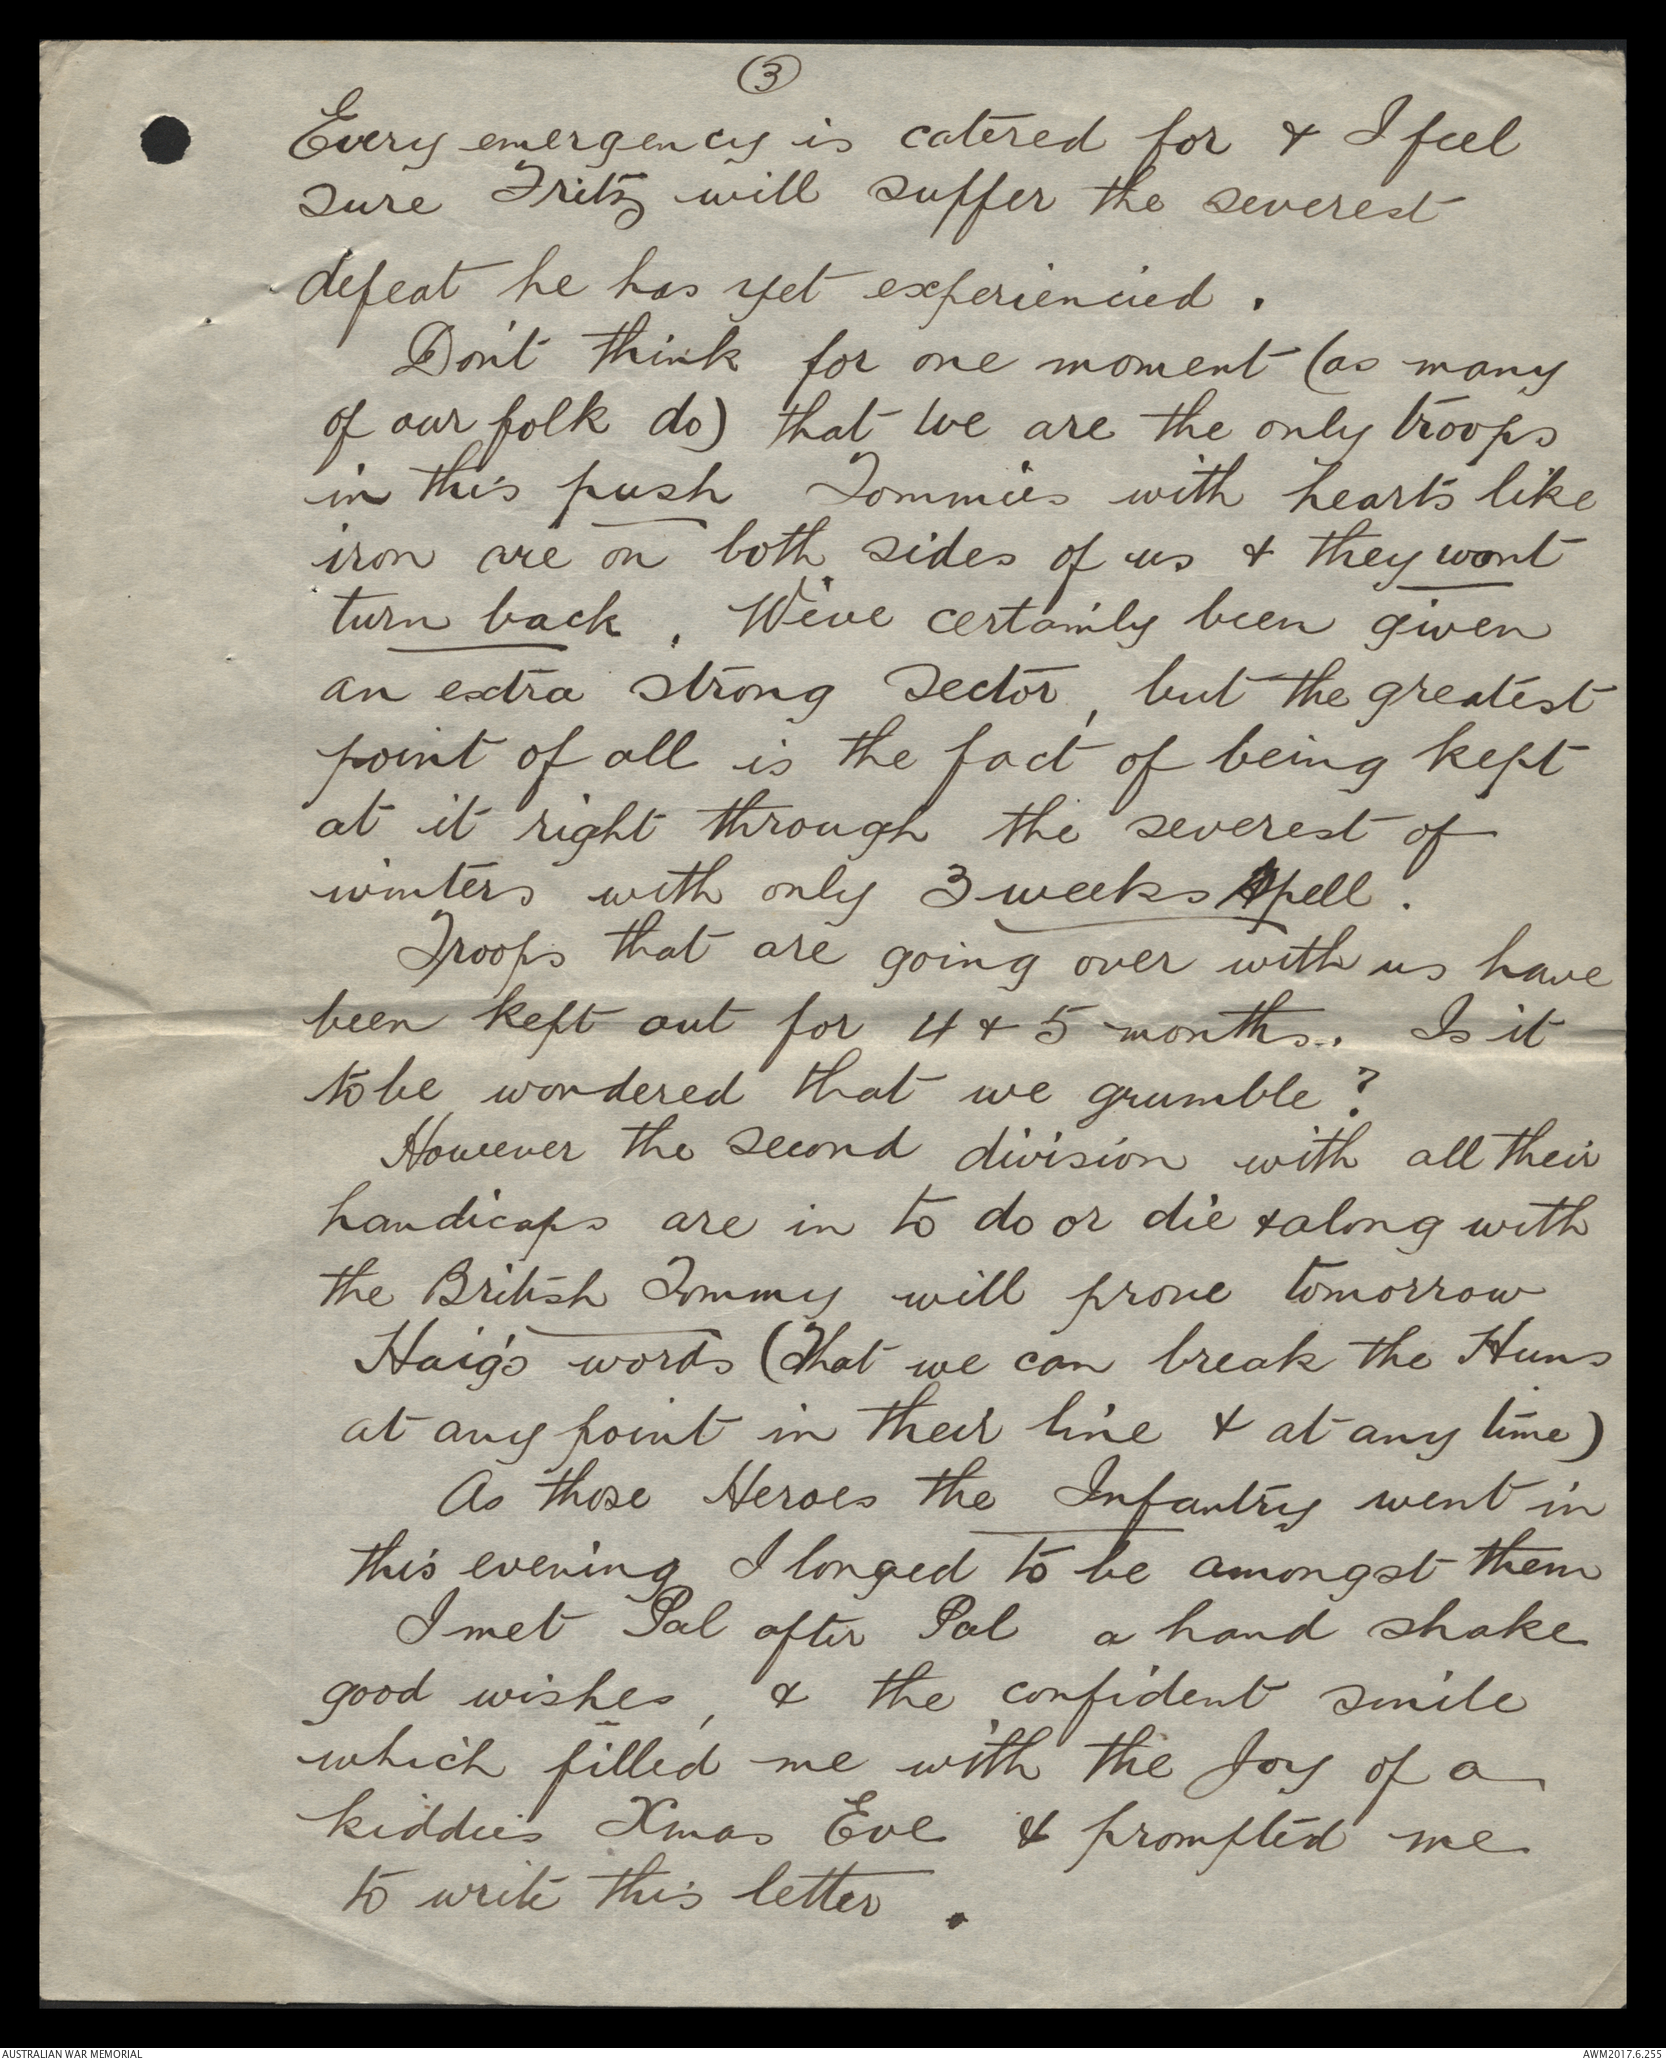 (3)
Every emergency is catered for & I feel
sure Fritz will suffer the severest
defeat he has yet experiencied.
Don't think for one moment (as many
of our folk do) that we are the only troops
in this push Tommies with hearts like
iron are on both sides of us & they wont
turn back. We've certainly been given
an extra strong sector, but the greatest
point of all is the fact of being kept
at it right through the severest of
winters with only 3 weeks spell.
Troops that are going over with us have
been kept out for 4 & 5 months. Is it
to be wondered that we grumble?
However the second division with all their
handicaps are in to do or die & along with
the British Tommy will prove tomorrow
Haig's words (That we can break the Huns
at any point in their line & at any time)
As those Heroes the Infantry went in
this evening I longed to be amongst them
I met Pal after Pal a hand shake
good wishes, & the confident smile
which filled me with the Joy of a
kiddies Xmas Eve & prompted me
to write this letter.
AUSTRALIAN WAR MEMORIAL
AWM2017.6.255